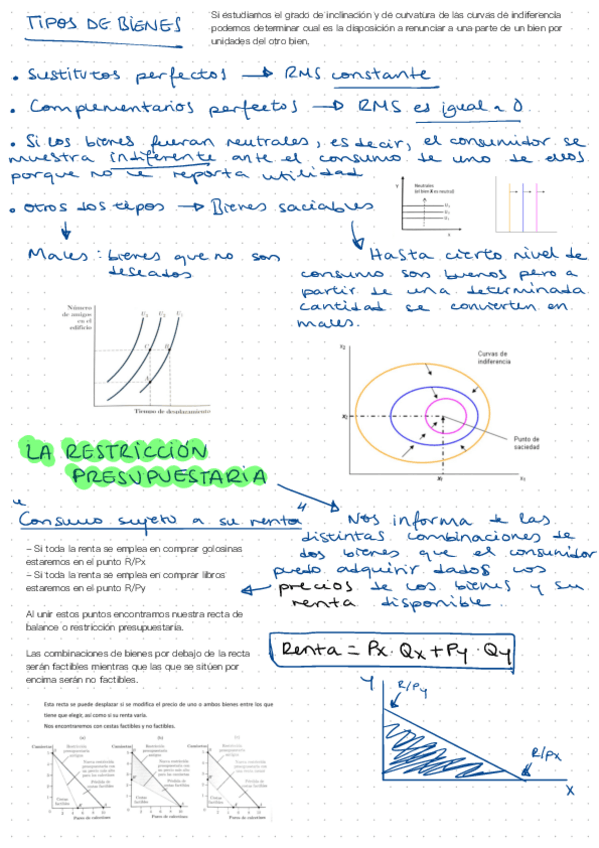 TIPOS DE BIENES
Si estudiamos el grado de inclinación y de curvatura de las curvas de indiferencia
podemos determinar cual es la disposición a renunciar a una parte de un bien por
unidades del otro bien.
• Sustitutos perfectos → RMS constante
• Complementarios perfectos → RMS es igual a 0
• Si los bienes fueran neutrales, es decir, el consumidor se
muestra indiferente ante el consumo de uno de ellos
porque no le reporta utilidad
Y
Neutrales
(el bien X es neutral)
U3
U2
U1
X
• otros dos tipos → Bienes saciables
Males: bienes que no son
deseados
Hasta cierto nivel de
consumo son buenos pero a
partir de una determinada
cantidad se convierten en
males.
Número
de amigos
en el
edificio
C
B
A
Tiempo de desplazamiento
x2
Curvas de
indiferencia
x2
Punto de
saciedad
x1
LA RESTRICCIÓN
PRESUPUESTARIA
"Consumo sujeto a su renta"
Nos informa de las
distintas combinaciones de
dos bienes que el consumidor
puedo adquirir dados los
precios de los bienes y su
renta disponible.
– Si toda la renta se emplea en comprar golosinas
estaremos en el punto R/Px
– Si toda la renta se emplea en comprar libros
estaremos en el punto R/Py
Al unir estos puntos encontramos nuestra recta de
balance o restricción presupuestaria.
Las combinaciones de bienes por debajo de la recta
serán factibles mientras que las que se sitúen por
encima serán no factibles.
Renta = Px · Qx + Py · Qy
Y
R/Py
R/Px
X
Esta recta se puede desplazar si se modifica el precio de uno o ambos bienes entre los que
tiene que elegir, así como si su renta varía.
Nos encontraremos con cestas factibles y no factibles.
(a)
(b)
(c)